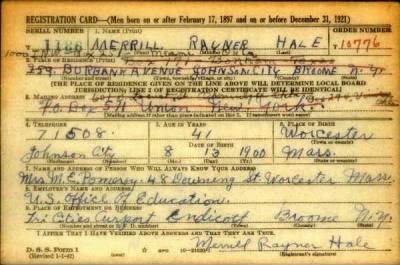 REGISTRATION CARD—(Men born on or after February 17, 1897 and on or before December 31, 1921)
SERIAL NUMBER 1. NAME (Print) ORDER NUMBER
1186 MERRILL RAYNER HALE 10776
2. PLACE OF RESIDENCE (Print)
Texas
259 BURBANK AVENUE JOHNSON CITY BROOME N.Y.
[THE PLACE OF RESIDENCE GIVEN ON THE LINE ABOVE WILL DETERMINE LOCAL BOARD
JURISDICTION; LINE 2 OF REGISTRATION CERTIFICATE WILL BE IDENTICAL]
3. MAILING ADDRESS
P.O. Box 511 Union New York
[Mailing address if other than place indicated on line 2. If same insert word same]
4. TELEPHONE 5. AGE IN YEARS 6. PLACE OF BIRTH
71508 41 Worcester
DATE OF BIRTH (Town or county)
Johnson City 8 13 1900 Mass.
(Exchange) (Number) (Mo.) (Day) (Yr.) (State or country)
7. NAME AND ADDRESS OF PERSON WHO WILL ALWAYS KNOW YOUR ADDRESS
Mrs M. E. Pomeroy 48 Downing St. Worcester Mass.
8. EMPLOYER'S NAME AND ADDRESS
U.S. Office of Education
9. PLACE OF EMPLOYMENT OR BUSINESS
Tri Cities Airport Endicott Broome N.Y.
(Number and street or R. F. D. number) (Town) (County) (State)
I AFFIRM THAT I HAVE VERIFIED ABOVE ANSWERS AND THAT THEY ARE TRUE.
D. S. S. Form 1
(Revised 1-1-42) Merrill Rayner Hale
(Registrant's signature)